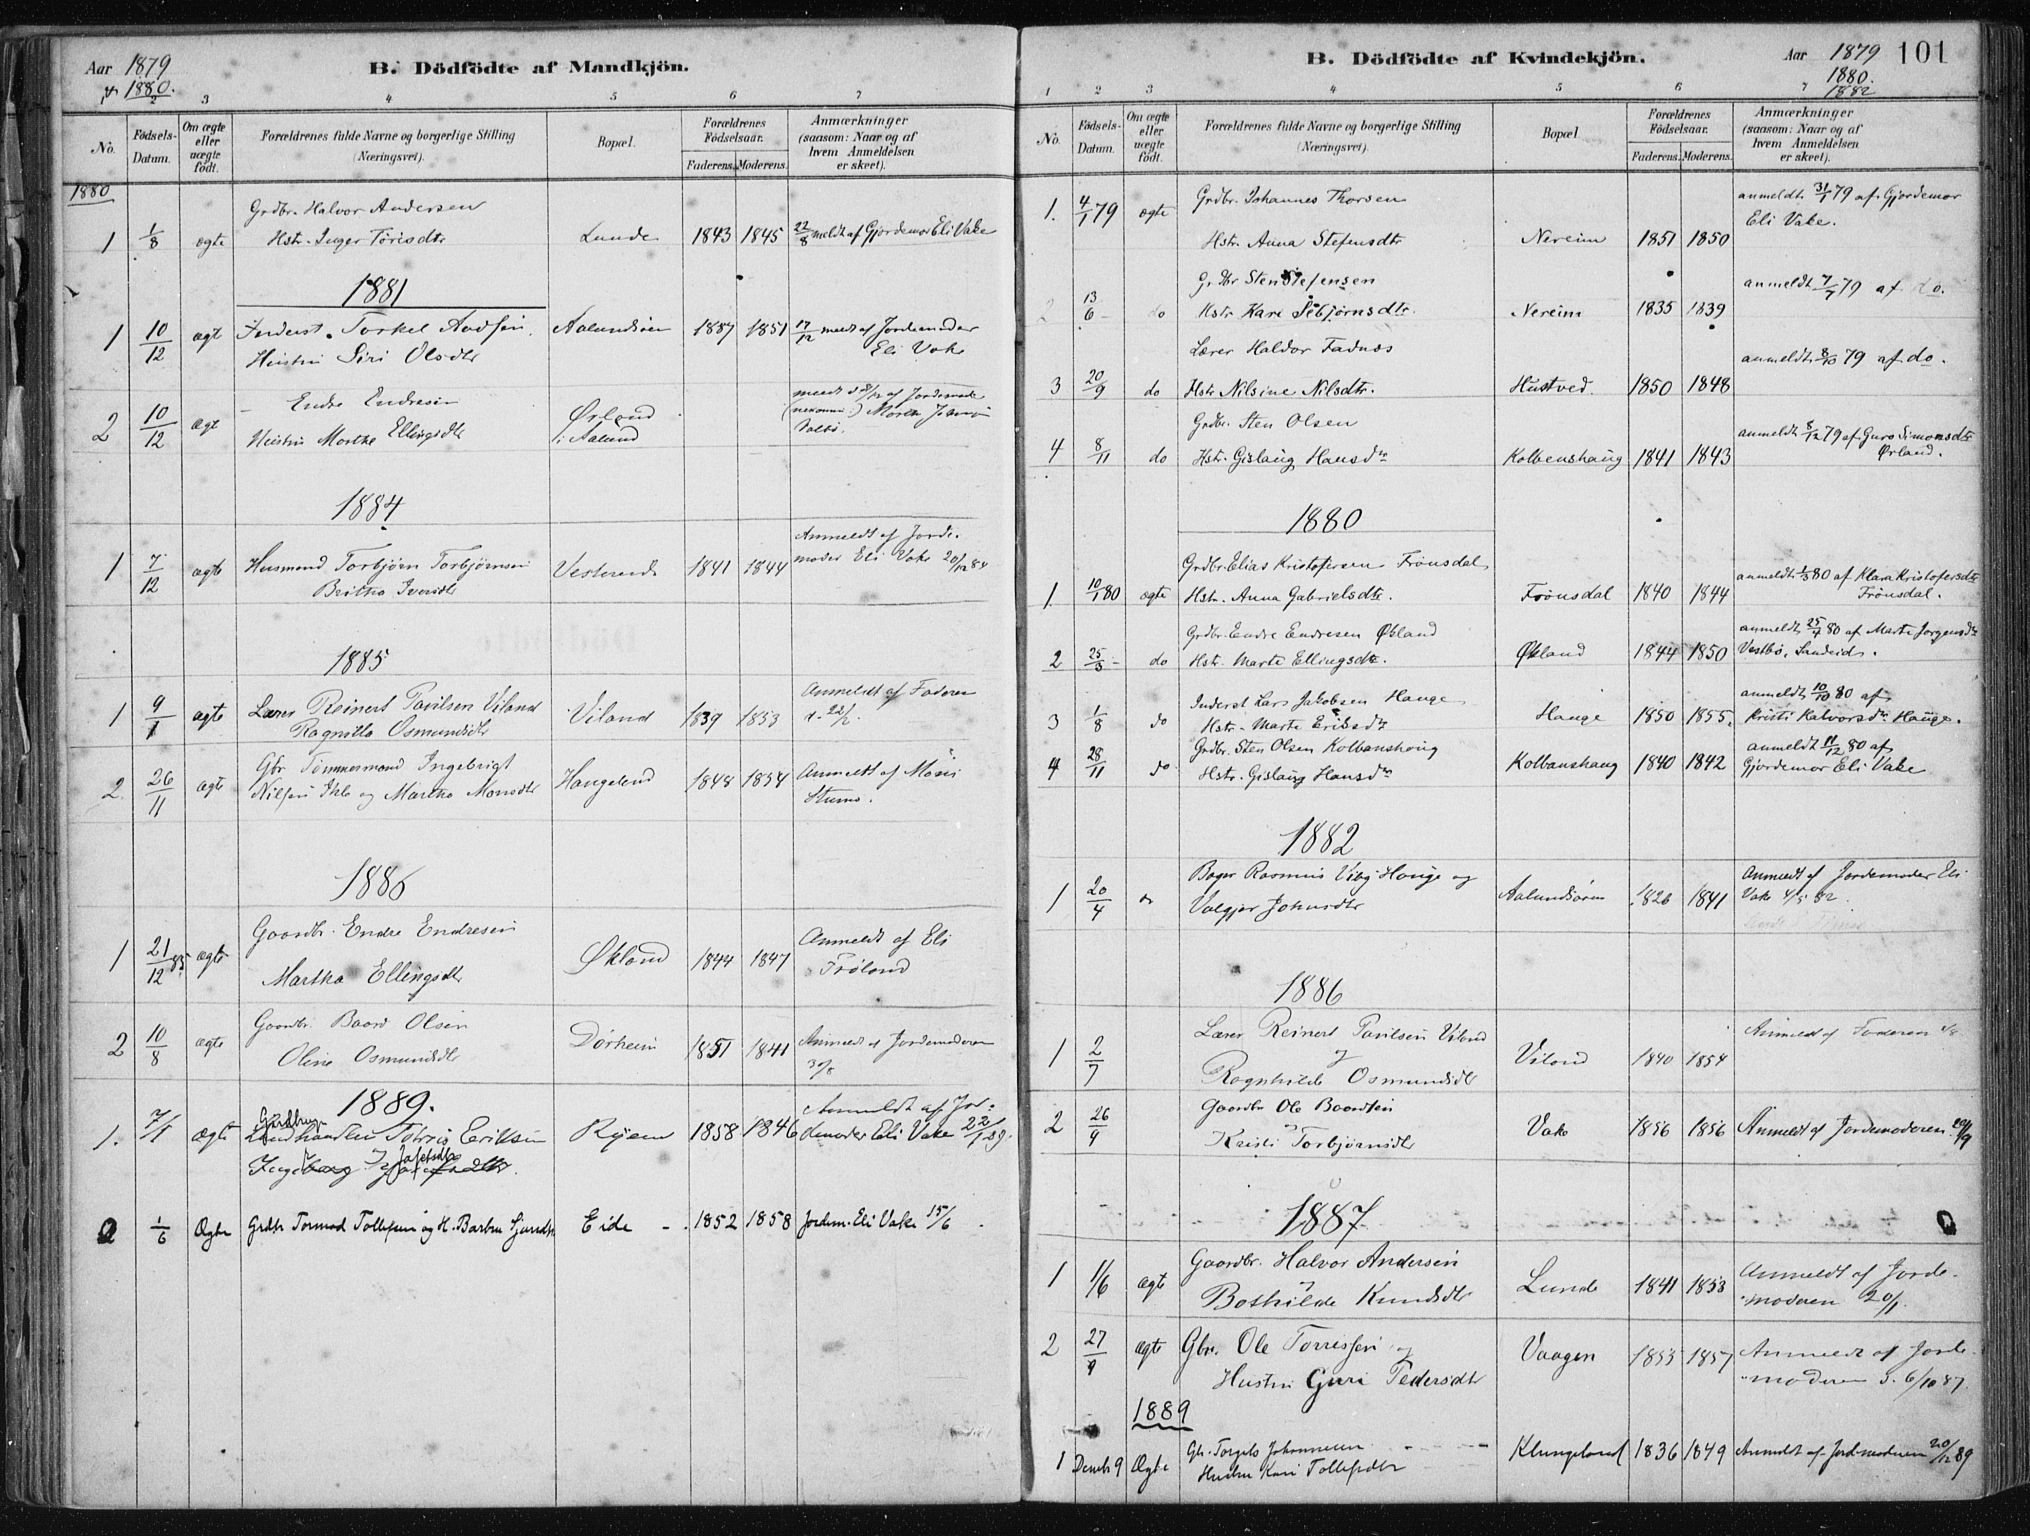 Aar 1879
1880.
B. Dödfödte af Mandkjön.
1 2 3 4 5 6 7
No.
Födsels-Datum.
Om ægte eller uægte födt.
Forældrenes fulde Navne og borgerlige Stilling (Næringsvei).
Bopæl.
Forældrenes Födselsaar.
Faderens. Moderens.
Anmærkninger (saasom: Naar og af hvem Anmeldelsen er skeet).
1880
Grdbr. Halvor Andersen
1 1/8 ægte Hstr. Inger Törisdtr Lunde 1843 1845 22/8 meldt af Gjordemor Eli Vake
1881
1 10/12 ægt Inderst. Torkel Aadsen Aalundsöen 1851 17/12 meldt af Jordemoder
Hustru Siri Olsdtr Eli Vake
Endre Endresen
2 10/12 ægt Hustru Marthe Ellingsdtr Ørland
i Aalund
1884
Anmeldt af Jorde-
1 7/12 ægte Husmand Torbjörn Torbjörnsen Vestrend 1841 1844 moder Eli Vake 20/12 84
Britha Iversdtr
1885
Anmeldt af Faderen
1 9/1 ægte Lærer Reinert Pavlsen Viland Viland 1839 1853 d. 22/2.
Ragnilla Osmundsdtr
Gbr Tömmermand Ingebrigt
2 26/11 ægte Nilsen og Martha Monsdtr Haugeland 1848 1854 Anmeldt af
1886
Gaardbr. Endre Endresen
1 21/12 85 ægte Martha Ellingsdtr Økland 1844 1847 Anmeldt af Eli
Fröland
Gaardbr. Baard Olsen
2 10/8 ægte Oline Osmundsdtr Dörheim 1851 1841 Anmeldt af Jordemoderen
30/8
1889.
Gardbrug
1. 7/1 ægte Landhandler Törris Eriksen Ryen 1858 1846 Anmeldt af Jor-
demoder Eli Vake 22/1 89.
Ingeborg
2 1/6 Ægte Grdbr Tormod Tollefsen og H. Barbru Sjursdtr Eide 1852 1858 Jordem. Eli Vake 15/6
B. Dödfödte af Kvindekjön.
Aar 1879
1880.
1882
101
1 2 3 4 5 6 7
No.
Födsels-Datum.
Om ægte eller uægte födt.
Forældrenes fulde Navne og borgerlige Stilling (Næringsvei).
Bopæl.
Forældrenes Födselsaar.
Faderens. Moderens.
Anmærkninger (saasom: Naar og af hvem Anmeldelsen er skeet).
1. 4/1 79 ægte Grdbr. Johannes Thorsen anmeldt 31/1 79 af Gjordemor
Eli Vake.
Hstr. Anna Stefensdtr Nereim 1851 1850
Grdbr Sten Stefensen anmeldt 7/7 79 af do.
2 13/6 do Hstr Kari Sebjörnsdtr. Nereim 1835 1839
Lærer Haldor Fadnæs anmeldt 8/10 79 af do.
3 20/9 do Hstr Nilsine Nilsdtr. Hustved. 1850 1848
Grdbr. Sten Olsen anmeldt 8/12 79 af Guro Simonsdtr
Ørland.
4 8/11 do Hstr. Gislaug Hansdtr Kolbenshaug 1841 1843
1880
Grdbr. Elias Kristofersen Frönsdal anmeldt 1/3 80 af Klara Kristofersdtr
Frönsdal.
1. 10/1 80 ægte Hstr. Anna Gabrielsdtr. Frönsdal 1840 1844
Grdbr. Endre Endresen Økland anmeldt 25/4 80 af Marte Jorgensdtr
2 25/3 do Hstr. Marte Ellingsdtr. Økland 1844 1850 Vestbö, Sandeid.
Inderst Lars Jakobsen Hauge anmeldt 10/10 80 af
3 1/8 do Hstr. Marte Eriksdtr Hauge 1850 1855. Kristi Halvorsdtr Hauge.
Grdbr. Sten Olsen Kolbanshaug anmeldt 11/12 80 af
4 28/11 do Hstr. Gislaug Hansdtr Kolbanshaug 1840 1842 Gjordemor Eli Vake
1882
Rasmus Hauge og Anmeldt af Jordemoder Eli
1 20/4 Valgjer Johnsdtr Aalundsören 1826 1841 Vake 4/5 82.
1886
Lærer Reinert Pavlsen Viland Anmeldt af Faderen
1 2/7 Ragnhilde Osmundsdtr Viland 1840 1854
Gaardbr Ole Baardsen
2 26/9 Kristi Torbjörnsdtr Vake 1856 1856 Anmeldt af Jordemoderen
1887
Gaardbr. Halvor Andersen Anmeldt af Jorde-
1 1/6 ægt Bothilde Knudsdtr Lunde 1841 1853 moderen 20/1.
2 27/9 ægte Gbr. Ole Torressen og Vaagen 1853 1857 Anmeldt af Jorde-
Hustru Guri Pedersdtr moderen d. 6/10 87.
1889
Gbr. Torgels Johannesen
1 Decmbr 9 Ægte Hustru Kari Tollefsdtr Klungeland 1836 1849 Anmeldt af Jordmoderen 20/12 89